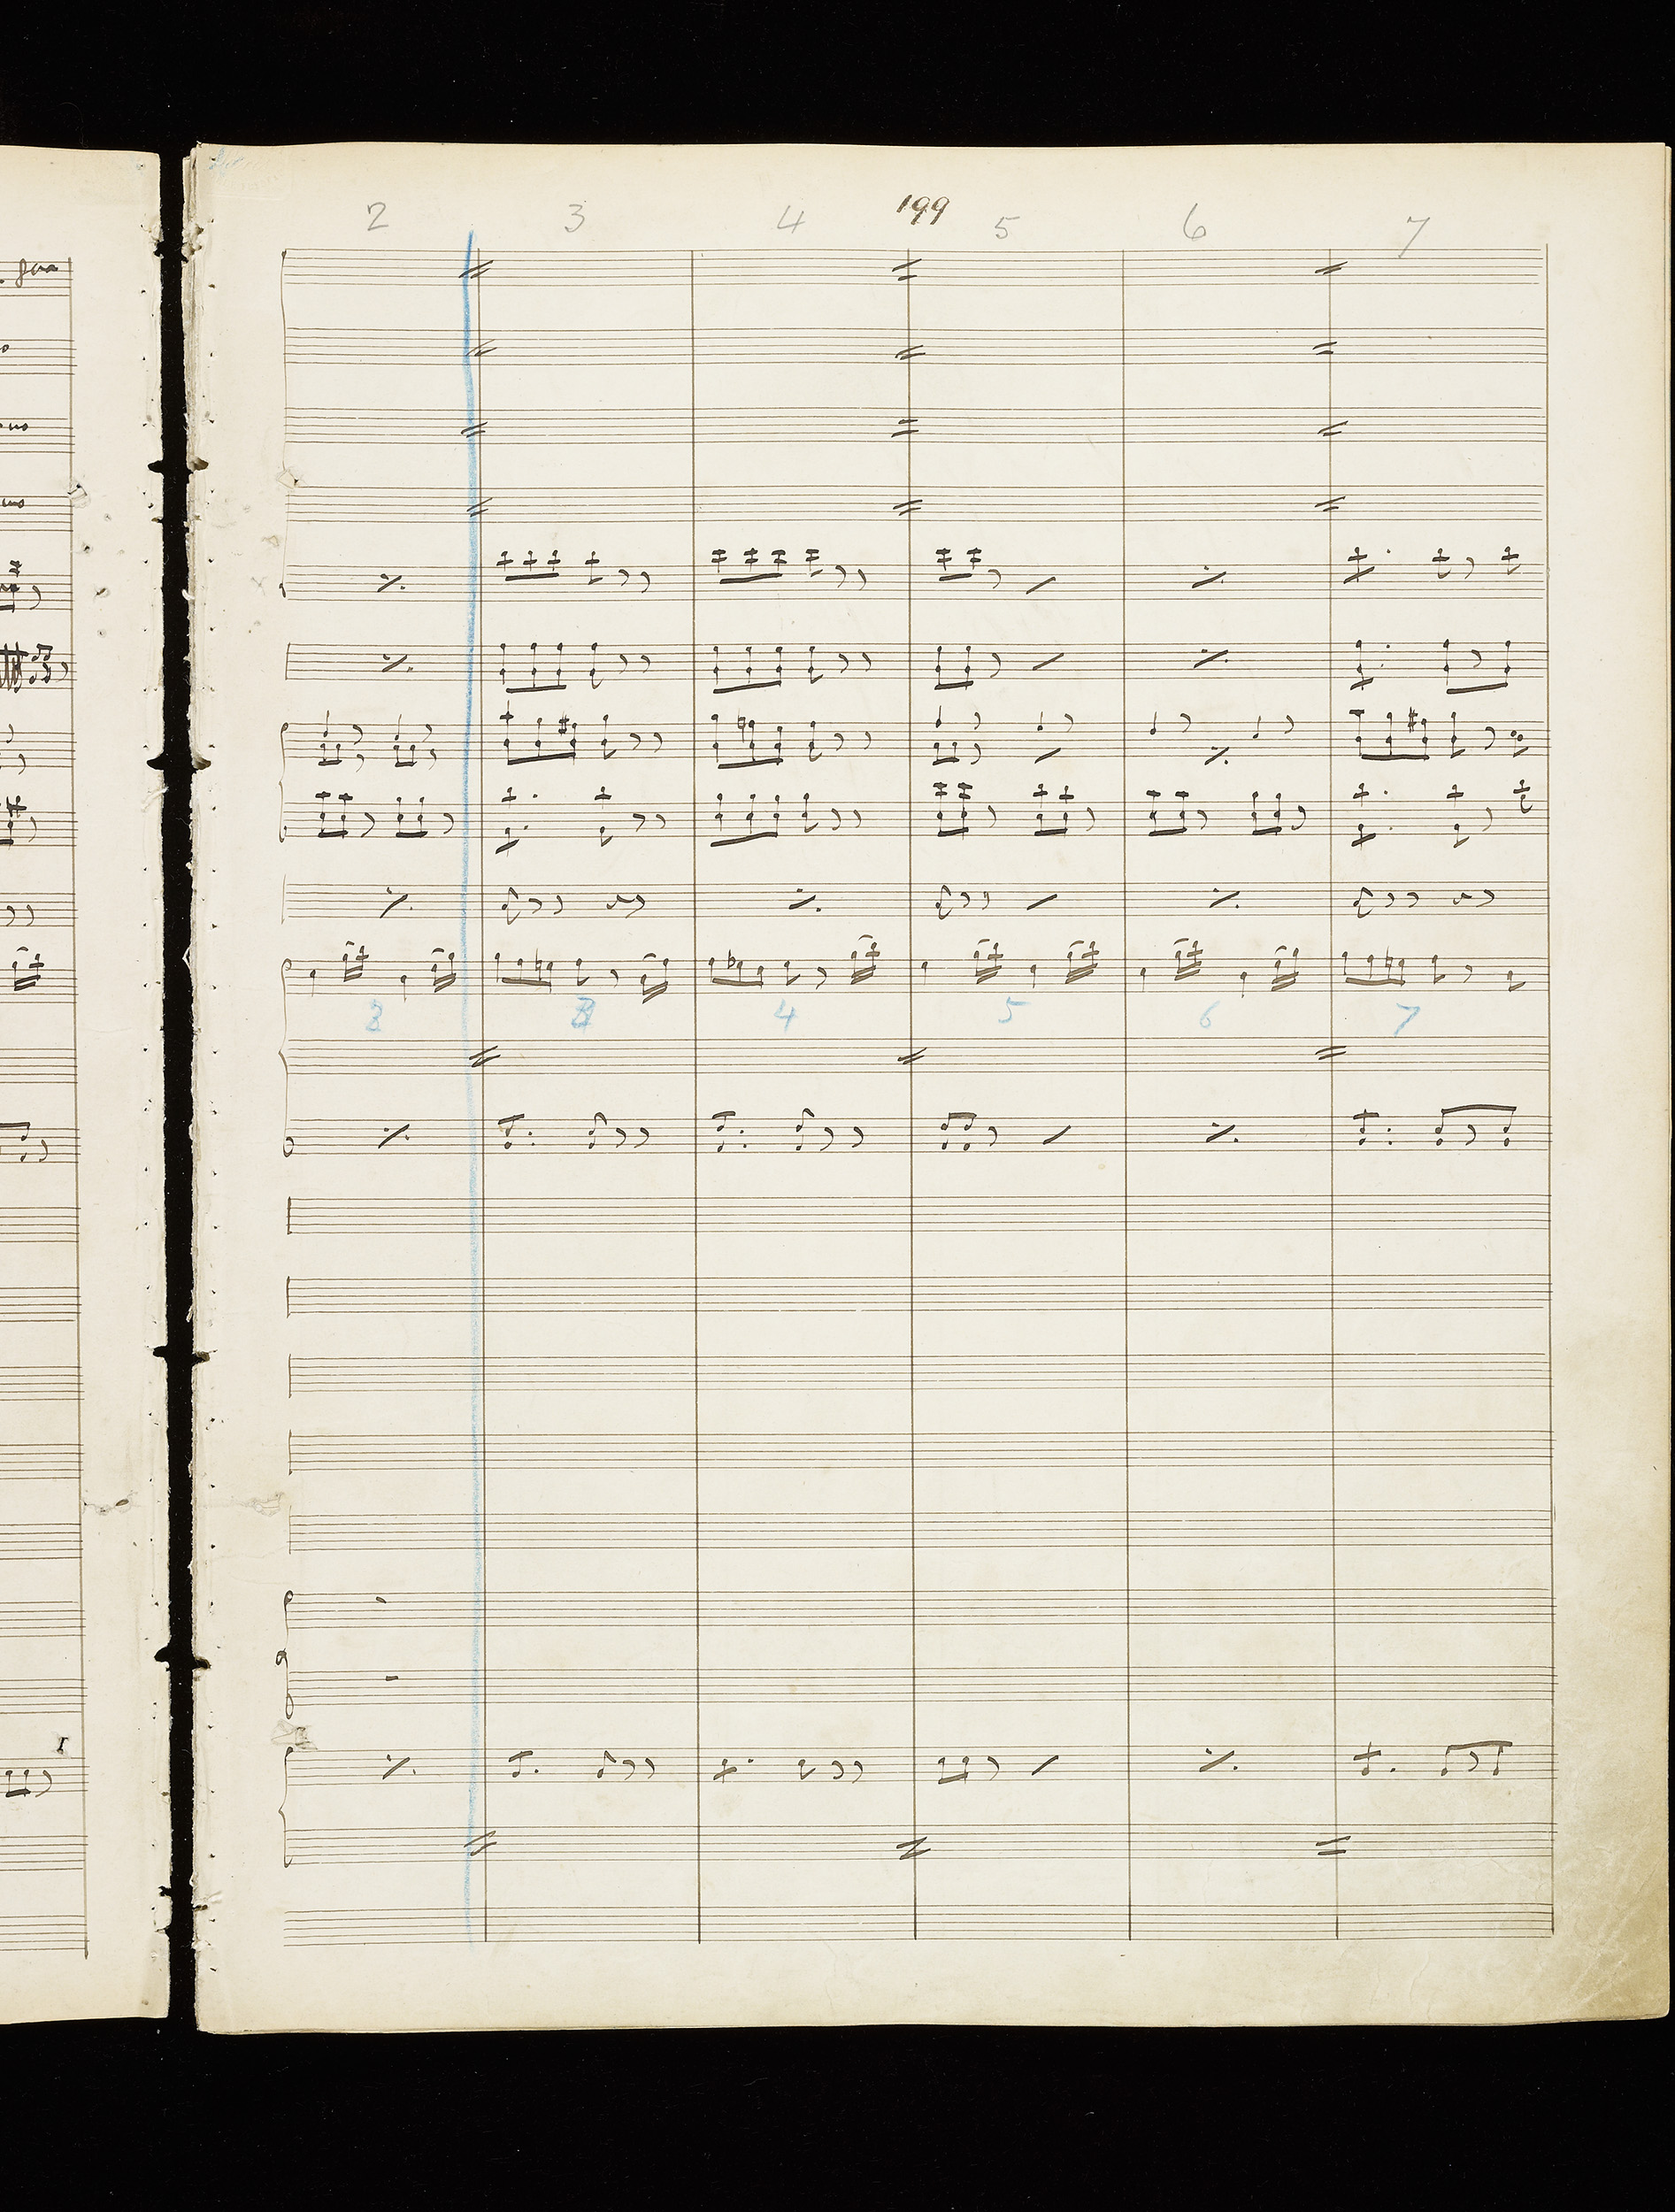 199
2 3 4 5 6 7
2 3 4 5 6 7
I